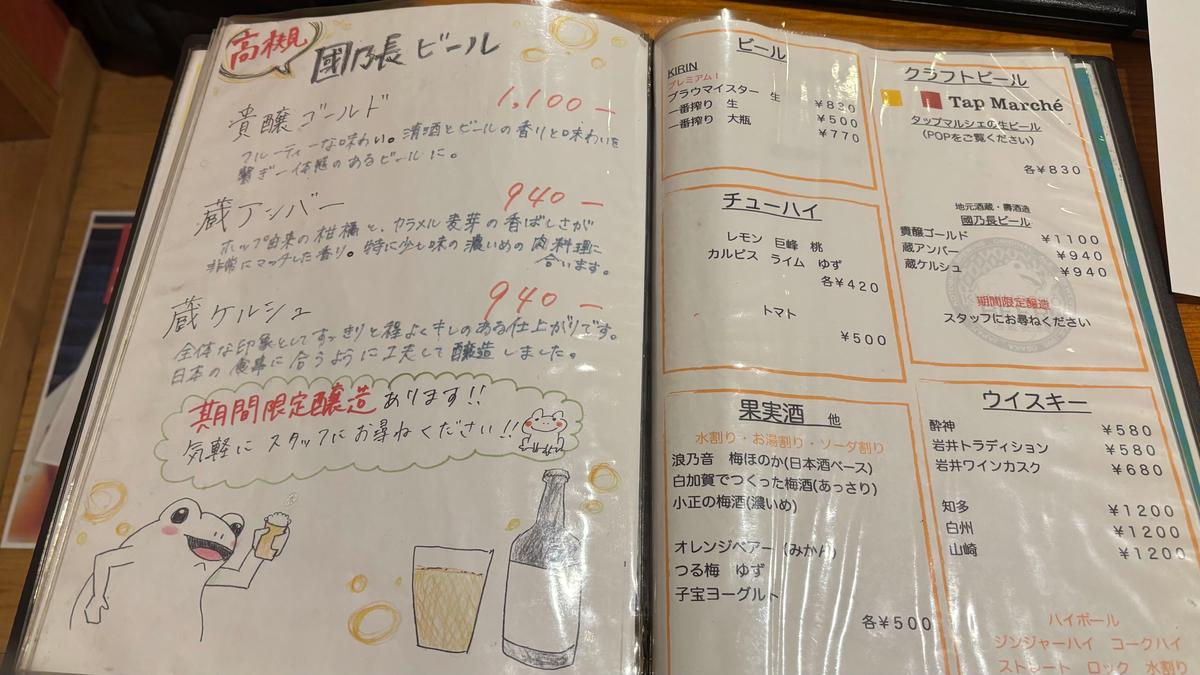 高槻
國乃長ビール
貴醸ゴールド 1,100-
フルーティーな味わい。清酒とビールの香りと味わいを
繋ぎ一体感のあるビールに。
蔵アンバー 940-
ホップ由来の柑橘と、カラメル麦芽の香ばしさが
非常にマッチした香り。特に少し味の濃いめの肉料理に
合います。
蔵ケルシュ 940-
全体な印象としてすっきりと程よくキレのある仕上がりです。
日本の食事に合うように工夫して醸造しました。
期間限定醸造あります!!
気軽にスタッフにお尋ねください!!
ビール
KIRIN
プレミアム!
ブラウマイスター 生 ¥830
一番搾り 生 ¥500
一番搾り 大瓶 ¥770
チューハイ
レモン 巨峰 桃
カルピス ライム ゆず
各¥420
トマト
¥500
果実酒 他
水割り・お湯割り・ソーダ割り
浪乃音 梅ほのか(日本酒ベース)
白加賀でつくった梅酒(あっさり)
小正の梅酒(濃いめ)
オレンジベアー(みかん)
つる梅 ゆず
子宝ヨーグルト
各¥500
クラフトビール
Tap Marché
タップマルシェの生ビール
(POPをご覧ください)
各¥830
地元酒蔵・壽酒造
國乃長ビール
貴醸ゴールド ¥1100
蔵アンバー ¥940
蔵ケルシュ ¥940
期間限定醸造
スタッフにお尋ねください
ウイスキー
酔神 ¥580
岩井トラディション ¥580
岩井ワインカスク ¥680
知多 ¥1200
白州 ¥1200
山崎 ¥1200
ハイボール
ジンジャーハイ コークハイ
ストレート ロック 水割り